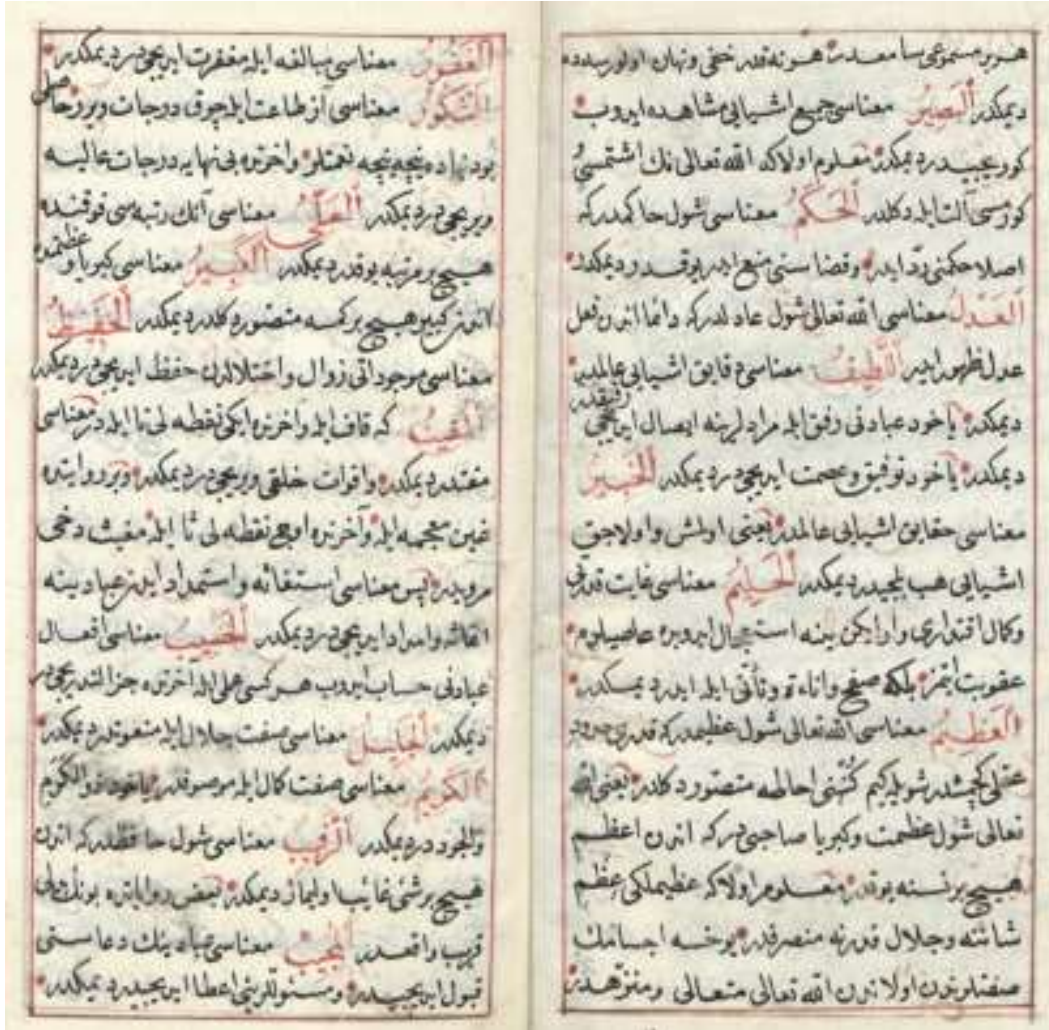 هر بر مسموعى سامعدر هر نه قدر خفى ونهان اولورسه ده
ديمكدر اَلْبَصِيرُ معناسى جميع اشيايى مشاهده ايدوب
كوريجيدر ديمكدر معلوم اولاكه الله تعالى نك اشتمسى
كورمسى آلت ايله دكلدر اَلْحَكَمُ معناسى شول حاكمدركه
اصلا حكمنى رد ايدر وقضاسنى منع ايدر يوقدر ديمكدر
اَلْعَدْلُ معناسى الله تعالى شول عادلدركه دائما اندن فعل
عدل ظهور ايدر اَللَّطِيفُ معناسى دقايق اشيايى عالمدر
ديمكدر ياخود عبادنى رفق ايله مرادلرينه ايصال ايديجى رفيقدر
ديمكدر ياخود توفيق وعصمت ايديجيدر ديمكدر اَلْخَبِيرُ
معناسى حقايق اشيايى عالمدر يعنى اولمش واولاجق
اشيايى هپ بلجيدر ديمكدر اَلْحَلِيمُ معناسى غايت قدرتى
وكمال اقتدارى وار ايكن ينه استعجال ايدوبده عاصيلره
عقوبت ايتمز بلكه صفح واناءة وتأنى ايله ايدر ديمكدر
اَلْعَظِيمُ معناسى الله تعالى شول عظيمدركه قدرى حدود
عقلى كچمشدر شويله كيم كنهنى احاطه متصور دكلدر يعنى الله
تعالى شول عظمت وكبريا صاحبيدركه اندن اعظم
هيچ بر نسنه يوقدر معلوم اولاكه عظيملكى عظم
شاننه وجلال قدرينه منصرفدر يوخسه اجسامك
صفتلرندن اولاندن الله تعالى متعالى ومنزهدر
اَلْغَفُورُ معناسى مبالغه ايله مغفرت ايديجيدر ديمكدر
اَلشَّكُورُ معناسى آز طاعت ايله چوق درجات ويرر حاصلى
بو دنياده نيجه نيجه نعمتلر وآخرتده بى نهايه درجات عاليه
ويريجيدر ديمكدر اَلْعَلِىُّ معناسى آنك رتبه سى فوقنده
هيچ بر مرتبه يوقدر ديمكدر اَلْكَبِيرُ معناسى كبريا وعظمتده
اندن كبير هيچ بر كمسه متصور دكلدر ديمكدر اَلْحَفِيظُ
معناسى موجوداتى زوال واختلالدن حفظ ايديجيدر ديمكدر
اَلْمُقِيتُ كه قاف ايله وآخرنده ايكى نقطه لى تا ايله در معناسى
مقتدر ديمكدر واقوات خلقى ويريجيدر ديمكدر وبر روايتده
غين معجمه ايله وآخرنده اوچ نقطه لى ثا ايله مغيث دخى
مرويدر پس معناسى استغاثه واستمداد ايدن عبادينه
اغاثه وامداد ايديجيدر ديمكدر اَلْحَسِيبُ معناسى افعال
عبادنى حساب ايدوب هر كسى عملى ايله آخرتده جزالنديريجيدر
ديمكدر اَلْجَلِيلُ معناسى صفت جلال ايله منعوتدر ديمكدر
اَلْكَرِيمُ معناسى صفت كمال ايله موصوفدر ياخود ذو الكرم
والجود در ديمكدر اَلرَّقِيبُ معناسى شول حافظدركه اندن
هيچ بر شئ غائب اولماز ديمكدر بعض روايتده بونك
قريب واقعدر اَلْمُجِيبُ معناسى عبادينك دعاسنى
قبول ايديجيدر ومسئوللرينى اعطا ايديجيدر ديمكدر